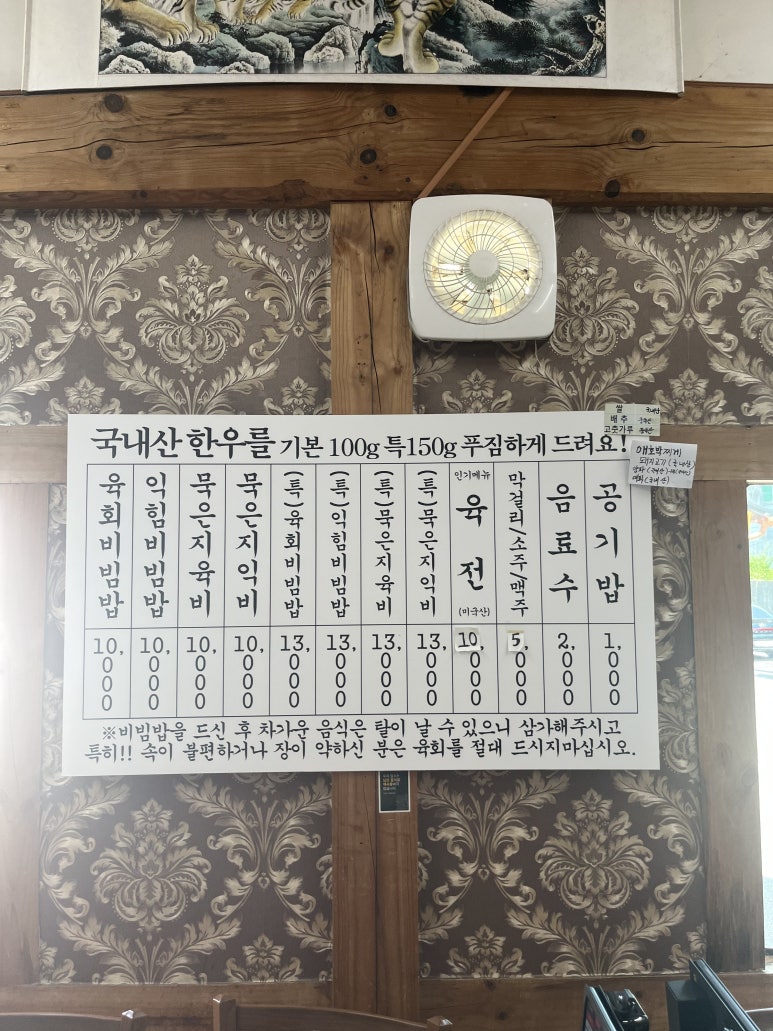 국내산 한우를 기본 100g 특150g 푸짐하게 드려요!
육회비빔밥 10,000
익힘비빔밥 10,000
묵은지육비 10,000
묵은지익비 10,000
(특)육회비빔밥 13,000
(특)익힘비빔밥 13,000
(특)묵은지육비 13,000
(특)묵은지익비 13,000
인기메뉴 육전 (미국산) 10,000
막걸리/소주/맥주 5,000
음료수 2,000
공기밥 1,000
※비빔밥을 드신 후 차가운 음식은 탈이 날 수 있으니 삼가해주시고
특히!! 속이 불편하거나 장이 약하신 분은 육회를 절대 드시지마십시오.
쌀 국내산
배추
고춧가루
애호박찌개
돼지고기(국내산)